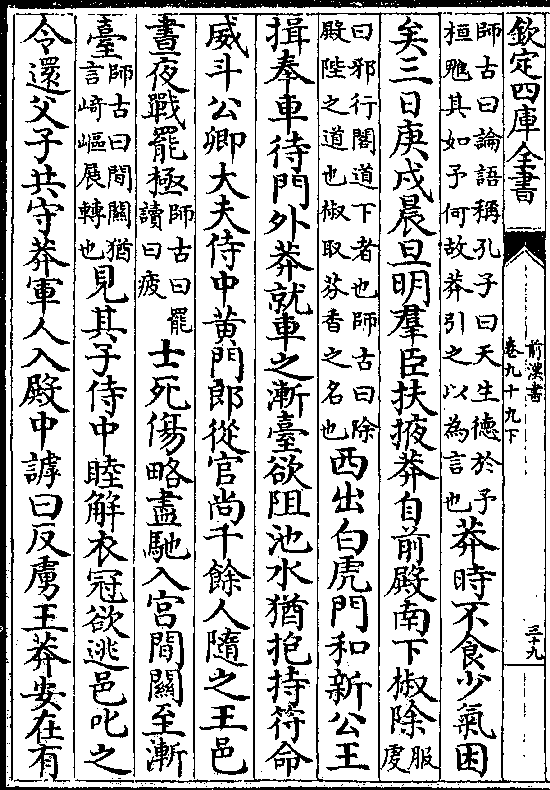 欽定四庫全書
前漢書
卷九十九下
三十九
師古曰論語稱孔子曰天生德於予
桓魋其如予何故莽引之以為言也
莽時不食少氣困
矣三日庚戌晨旦明羣臣扶掖莽自前殿南下椒除
服
虔
曰邪行閣道下者也師古曰除
殿陛之道也椒取芬香之名也
西出白虎門和新公王
揖奉車待門外莽就車之漸臺欲阻池水猶抱持符命
威斗公卿大夫侍中黃門郎從官尚千餘人隨之王邑
晝夜戰罷極
師古曰罷
讀曰疲
士死傷略盡馳入宮間關至漸
臺
師古曰間關猶
言崎嶇展轉也
見其子侍中睦解衣冠欲逃邑叱之
令還父子共守莽軍人入殿中謼曰反虜王莽安在有